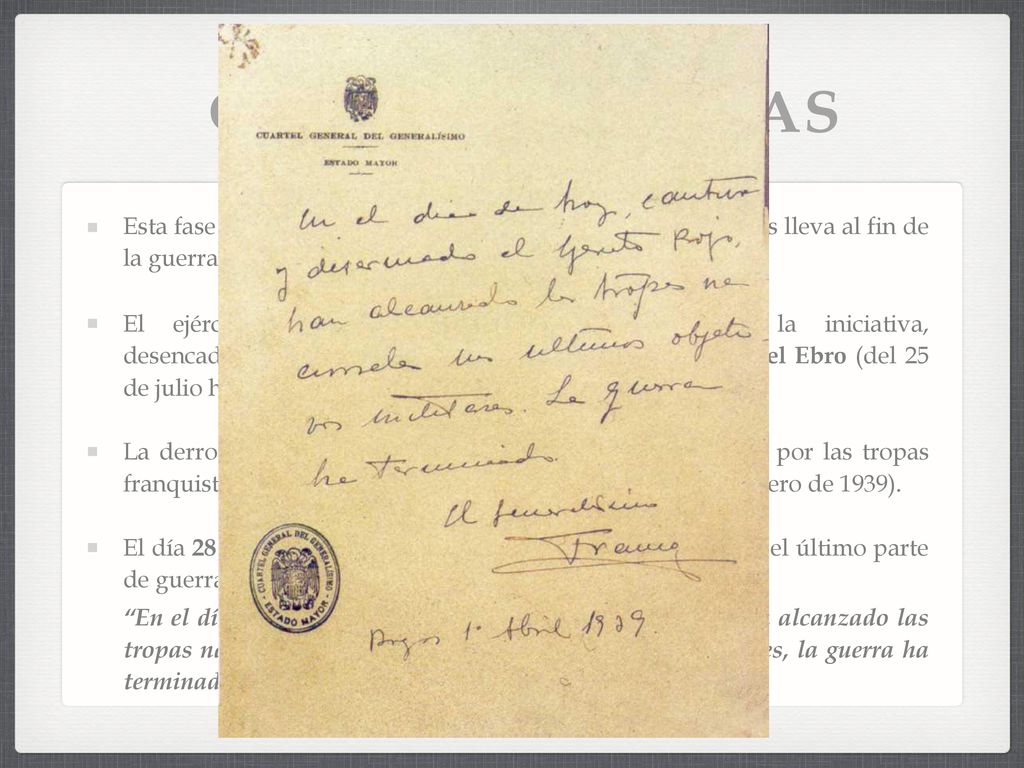 AS
CUARTEL GENERAL DEL GENERALÍSIMO
ESTADO MAYOR
En el día de hoy, cautivo
y desarmado el Ejército Rojo,
han alcanzado las tropas na
cionales sus ultimos objeti-
vos militares. La guerra
ha terminado.
El Generalísimo
Franco
Burgos 1º Abril 1939.
CUARTEL GENERAL DEL GENERALÍSIMO
ESTADO MAYOR
Esta fase s lleva al fin de
la guerra
El ejérc la iniciativa,
desencad el Ebro (del 25
de julio h
La derro por las tropas
franquist ero de 1939).
El día 28 el último parte
de guerra
“En el dí alcanzado las
tropas na es, la guerra ha
terminad